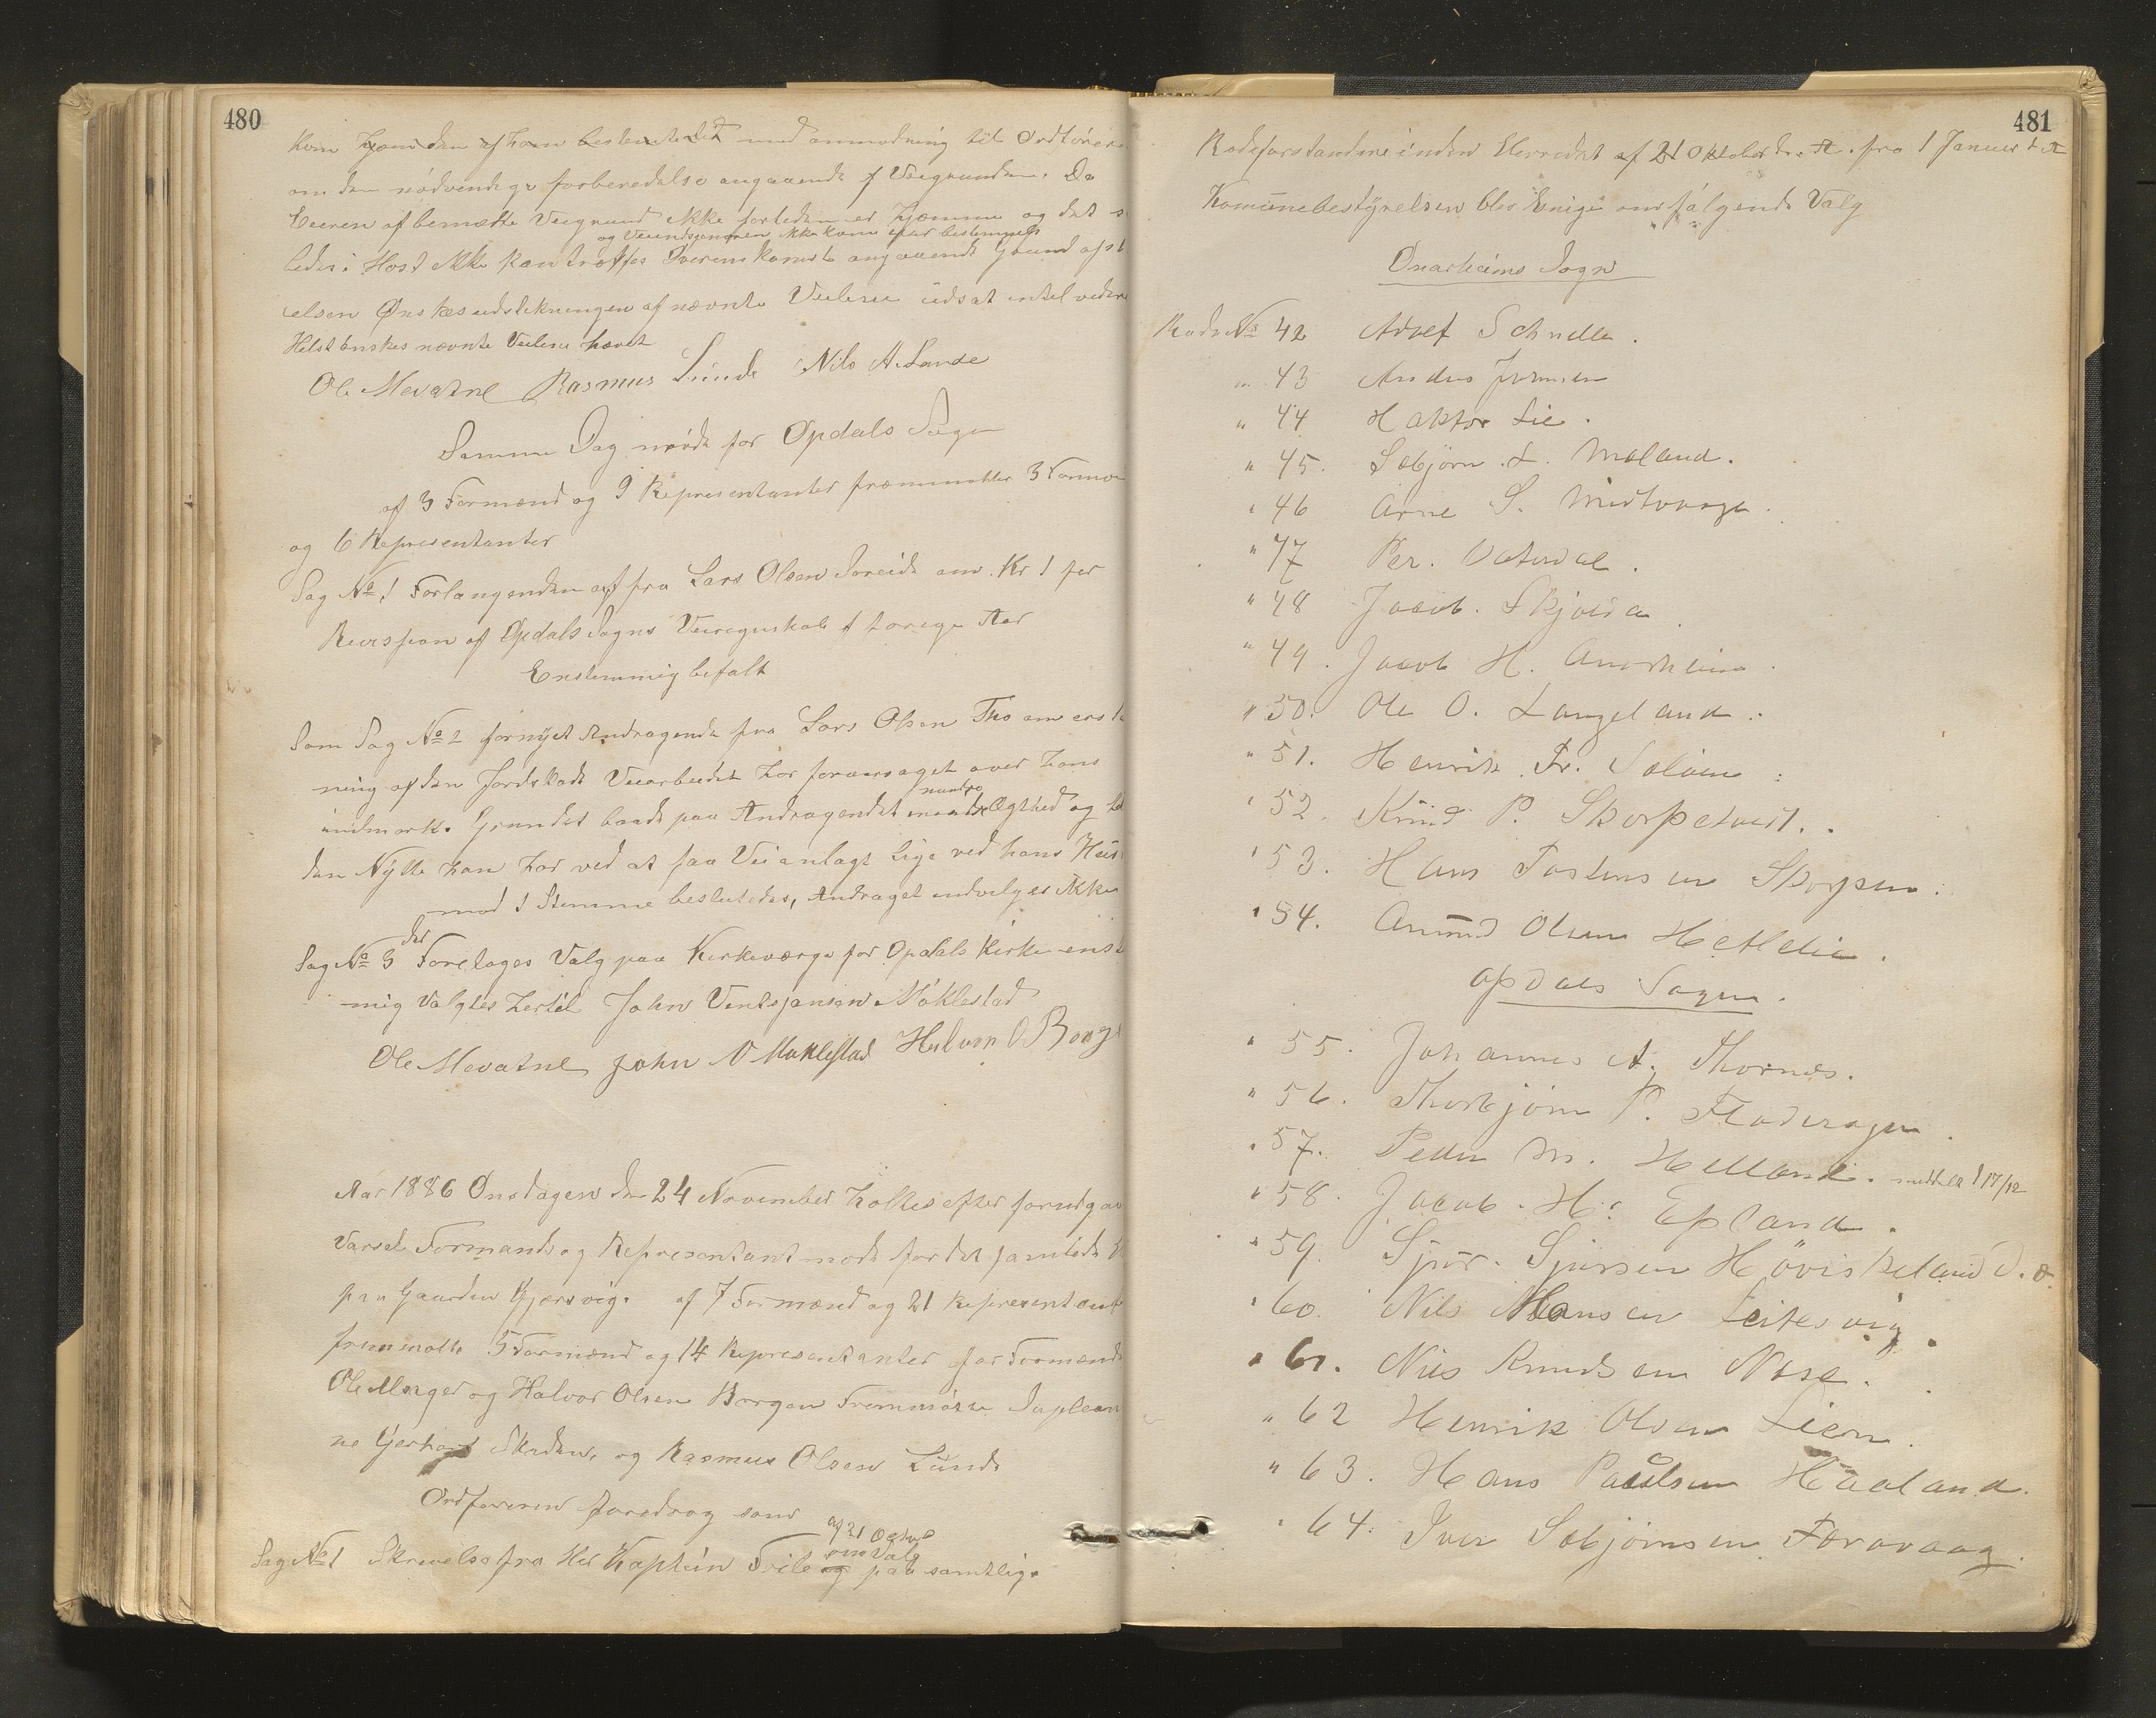 480
kom hjem den af ham bestemte Tid med anmodning til Ordförere
om den nödvendige forberedelse angaaende f Veigrunden. Da
Eieren af bemældte Veigrund ikke forleden er hjemme og det s
og Veiintendanten ikke kom efter bestemmels
ledes i Host ikke kan træffes Overenskomst angaaende Grund afst
elsen Önskes udstikningen af nævnte Veilinie udsat intil videre
Helst önskes nævnte Veilinie hævet
Ole Mevatne Rasmus Lunde Nils A. Lande
Samme Dag möde for Opdals Sogn
af 3 Formænd og 9 Representanter fremmötte 3 Formæ
og 6 Representanter
Sag No 1 Forlangende fra Lars Olsen Soreide om Kr 1 for
Revision af Opdals Sogns Veiregnskab f forrige Aar
Enstemmig befalt
Som Sag No 2 fornyet Andragende fra Lars Olsen Tho om ersta
ning af den Jordskade Veiarbeidet har foraarsaget over hans
indmark. Grundet baade paa Andragendet mindre Ægthed og
den Nytte han har ved at faa Veianlagt lige ved hans Hus
mod 1 Stemme besluttedes, Andraget indvilges ikke
Sag No 3 der Foretages Valg paa Kirkeværge for Opdals Kirke enst
mig Valgtes hertil John Ventsjansen Möklestad
Ole Mevatne John V Möklestad Halvor O Borge
Aar 1886 Onsdagen den 24 November holtes efter forudgaa
Varsel Formands og Representantmöde for det samlede H
paa Gaarden Gjersvig. af 7 Formænd og 21 Representant
fremmötte 5 Formænd og 14 Representanter for Formænd
Ole Mæger og Halvor Olsen Borgen Fremmötte Suplean
ne Gerhard Skaden, og Rasmus Olsen Lunde
Ordföreren foredrog som
af 21 Octob
om Valg
Sag No 1 Skrivelse fra Her Kaptein Friele paa samtlige
481
Rodeforstandere inden Herredet af 21 Oktober d. A. fra 1 Januar d A
Komunebestyrelsen blev Enige om følgende Valg
Onarheims Sogn
Rode No 42 Adolf Schnelle.
" 43 Andreas Jensen
" 44 Haktor Lie.
" 45. Sæbjörn L. Meland.
" 46 Arne S. Midtvaage.
" 47 Per. Vaterdal.
" 48 Jacob. Skjolda
" 49. Jacob H. Anarheim.
" 50. Ole O. Langeland.
" 51. Henrik Fr. Solem.
" 52. Knud P. Skorpetveit.
" 53. Hans Tostensen Skorpen.
" 54. Amund Olsen Hetlelie.
Opdals Sogn.
" 55. Johannes A. Thornæs.
" 56. Thorbjörn P. Fladeragen.
" 57. Peder M. Helland. meddelt d 17/12
" 58. Jacob. H. Epland.
" 59. Sjur. Sjursen Höviskeland d. æ.
" 60. Nils Monsen Leitesvig.
" 61. Nils Knudsen Nese.
" 62 Henrik Olsen Lien.
" 63. Hans Paulsen Haaland.
" 64. Iver Sæbjörnsen Færavaag.